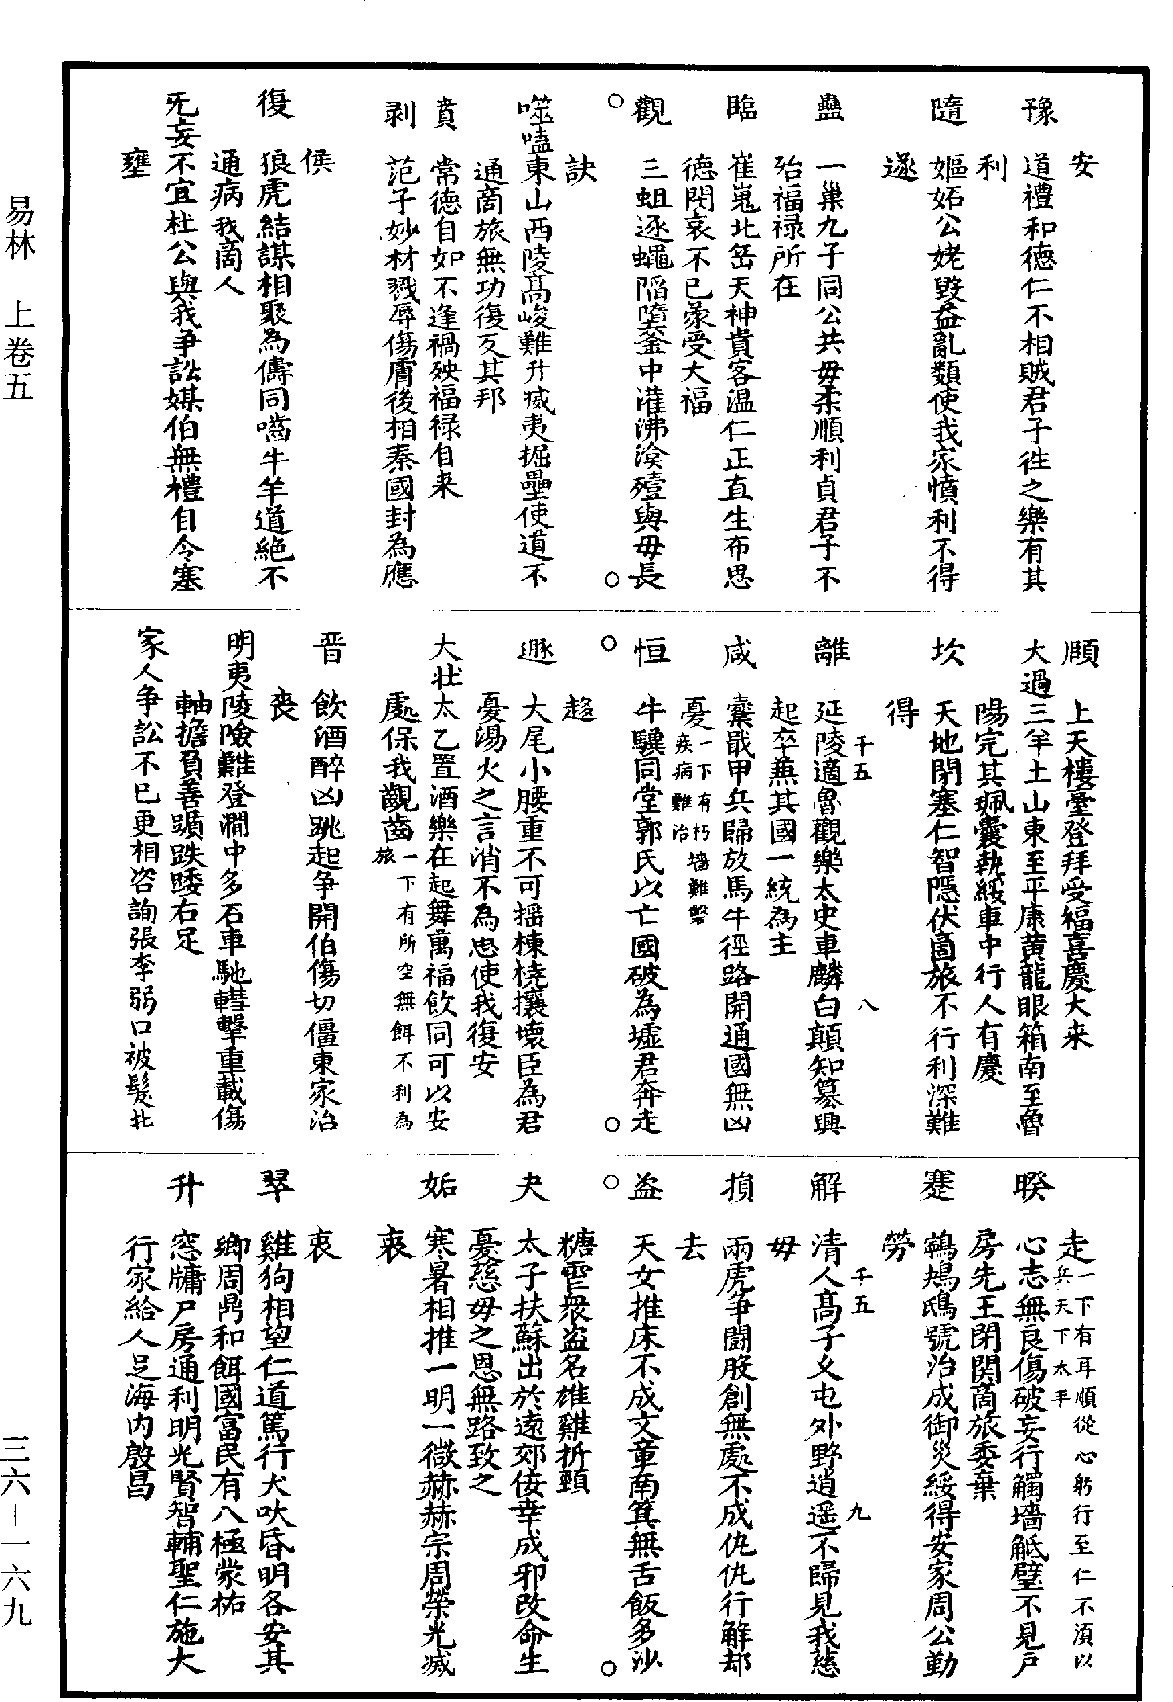 安
豫　道禮和德仁不相賊君子往之樂有其
利
隨　嫗妬公姥毀益亂類使我家憤利不得
遂
蠱　一巢九子同公共毋柔順利貞君子不
殆福祿所在
臨　崔嵬北岳天神貴客溫仁正直生布恩
德閔哀不已蒙受大福
觀　三蛆逐蠅陷墮釜中灌沸渰殪與毋長
訣
噬嗑東山西陵高峻難升滅夷掘壘使道不
通商旅無功復反其邦
賁　常德自如不逢禍殃福祿自来
剥　范子妙材戮辱傷膚後相秦國封為應
侯
復　狼虎結謀相聚為儔同嚙牛羊道絶不
通病我商人
旡妄不宜杜公與我争訟媒伯無禮自令塞
壅
頤　上天樓臺登拜受福喜慶大来
大過三羊土山東至平康黄龍眼箱南至魯
陽完其珮囊執綏車中行人有慶
坎　天地閉塞仁智隱伏商旅不行利深難
得
離　延陵適魯觀樂太史車麟白顛知篡興
起卒蕪其國一統為主
千五　八
咸　櫜戢甲兵歸放馬牛徑路開通國無凶
憂一下有朽墻難鑿疾病難治
恒　牛驥同堂郭氏以亡國破為墟君奔走
趍
遯　大尾小腰重不可揺棟橈攘壞臣為君
憂湯火之言消不為患使我復安
大壮太乙置酒樂在起舞萬福飲同可以安
處保我齯齒一下有所空無餌不利為旅
晋　飲酒醉凶跳起争鬭伯傷切僵東家治
喪
明夷陵險難登澗中多石車馳轊擊重載傷
軸擔負善躓跌踒右足
家人争訟不已更相咨詢張李弱口被髮北
走一下有耳順從心躬行至仁不湏以兵天下太平
睽　心志無良傷破妄行觸墻觝壁不見戸
房先王閉關商旅委棄
蹇　鶺鳩鴟號治成御災綏得安家周公勤
勞
解　清人高子义屯外野逍遥不歸見我慈
毋
千五　九
損　兩虎争鬭股創無處不成仇仇行解却
去
益　天女推床不成文章南箕無舌飯多沙
糖虐衆盗名雄雞折頸
夬　太子扶蘇出於遠郊佞幸成邪改命生
憂慈毋之恩無路致之
姤　寒暑相推一明一微赫赫宗周榮光滅
衰
萃　雞狗相望仁道篤行犬吠昏明各安其
鄉周鼎和餌國富民有八極蒙祐
升　窓牖戸房通利明光賢智輔聖仁施大
行家給人足海内殷昌
易林　上卷五
三六－一六九